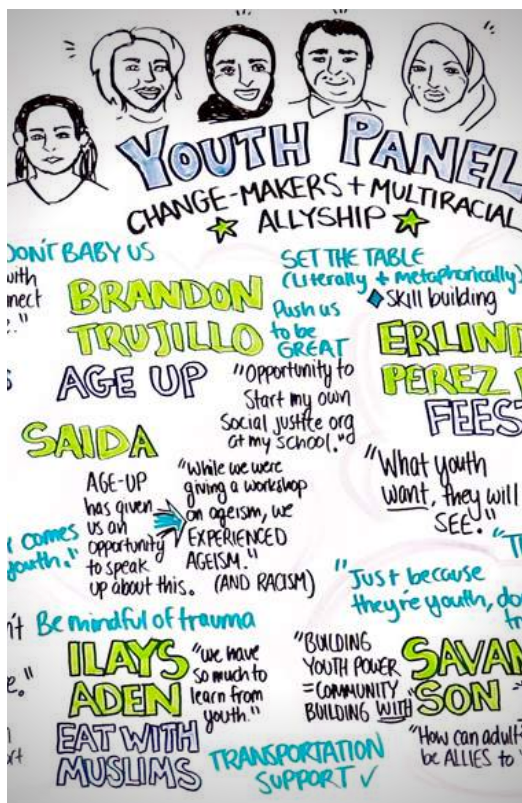 YOUTH PANEL
CHANGE-MAKERS + MULTIRACIAL
ALLYSHIP
DON'T BABY US
with
."
BRANDON
TRUJILLO
AGE UP
SET THE TABLE
(Literally + metaphorically)
SKill building
Push us
to be
GREAT
"Opportunity to
Start my own
Social justice org
at my school."
PEREZ
FEEST
SAIDA
AGE-UP
has given
us an
opportunity
to speak
up about this.
"While we were
giving a workshop
on ageism, we
EXPERIENCED
AGEISM."
(AND RACISM)
"What youth
want, they will
SEE."
comes
youth."
"Just because
they're youth, do
Be mindful of trauma
ILAYS
ADEN
EAT WITH
MUSLIMS
"we have
so much to
learn from
youth."
"BUILDING
YOUTH POWER
=COMMUNITY
BUILDING WITH"
SAVAN
SON
"How can adult
be ALLIES to
TRANSPORTATION
SUPPORT ✓